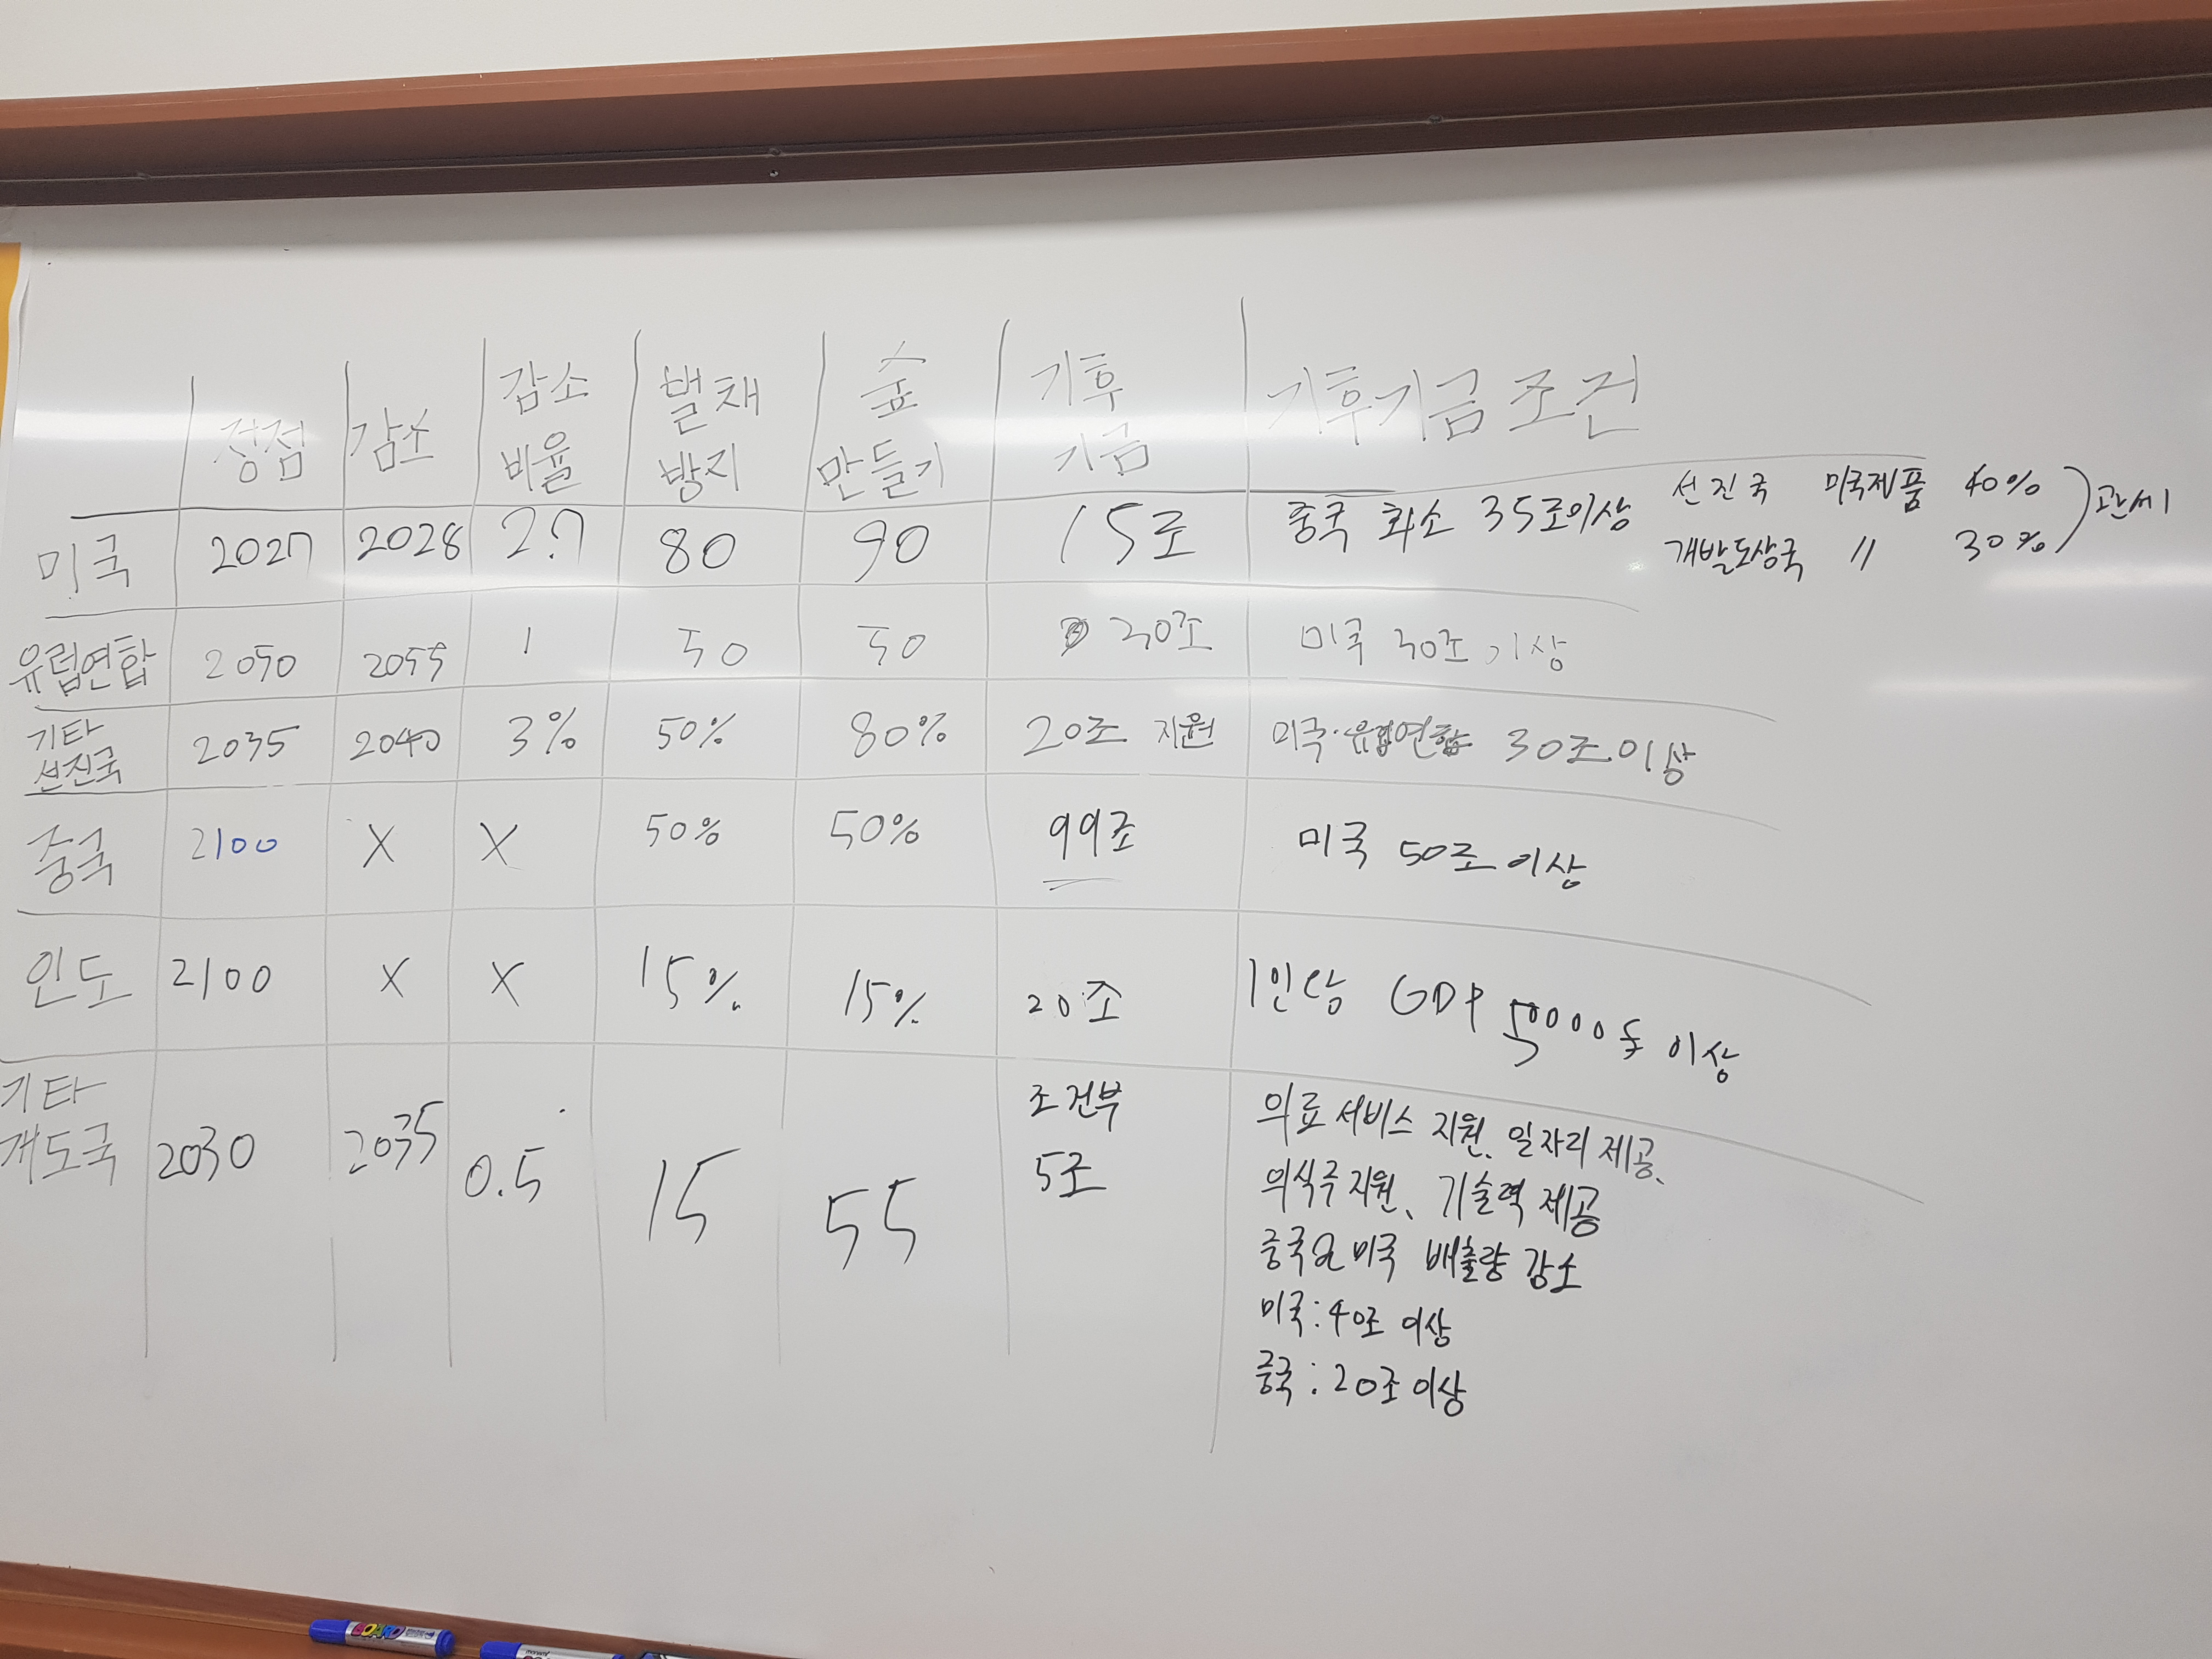 정점 감소 감소 비율 벌채 방지 숲 만들기 기후 기금 기후기금 조건
미국 2027 2028 2.7 80 90 15조 중국 최소 35조이상 선진국 미국제품 40%
개발도상국 〃 30% 관세
유럽연합 2050 2055 1 50 50 30조 미국 30조 이상
기타 선진국 2035 2040 3% 50% 80% 20조 지원 미국·유럽연합 30조 이상
중국 2100 X X 50% 50% 99조 미국 50조 이상
인도 2100 X X 15% 15% 20조 1인당 GDP 50000불 이상
기타 개도국 2030 2035 0.5 15 55 조건부 5조 의료 서비스 지원, 일자리 제공,
의식주 지원, 기술력 제공
중국&미국 배출량 감소
미국 : 40조 이상
중국 : 20조 이상
BOARD